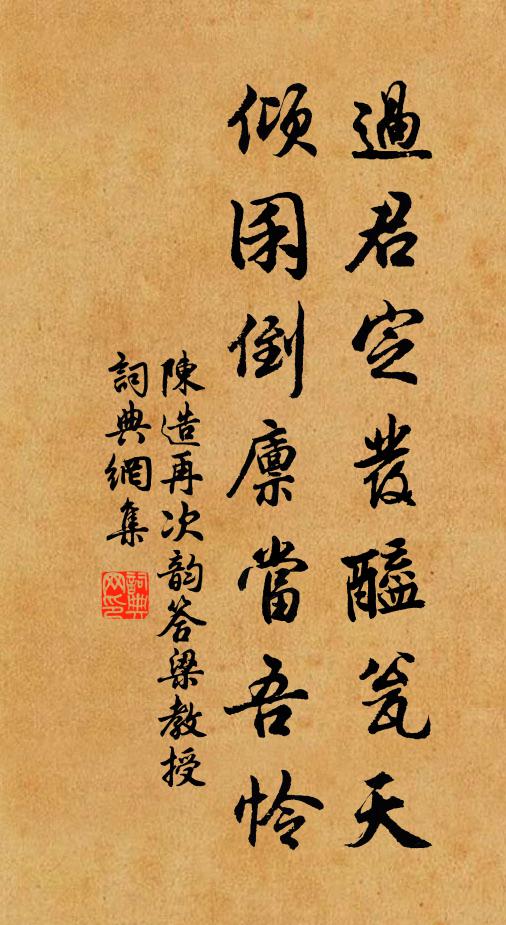 過君定發醯瓮天
傾囷倒廪當吾怜
陳造再次韵答梁教授
詞典網集
詞典网印